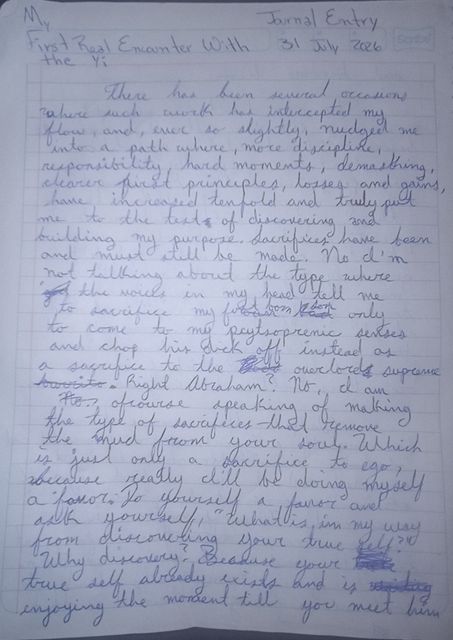 My
Journal Entry
First Real Encounter With
31 July 2026
Scribe
the Yi
There has been several occasions
where such work has intercepted my
flow, and, ever so slightly, nudged me
into a path where, more discipline,
responsibility, hard moments, demasking,
clearer first principles, losses and gains,
have increased tenfold and truly put
me to the tests of discovering and
building my purpose. Sacrifices have been
and must still be made. No I'm
not talking about the type where
the voices in my head tell me
to sacrifice my first born only
to come to my senses
and chop his dick off instead as
a sacrifice to the overlords supreme
Right Abraham? No, I am
ofcourse speaking of making
the type of sacrifices that remove
the mud from your soul. Which
is just only a sacrifice to ego,
because really I'll be doing myself
a favor. Do yourself a favor and
ask yourself, "What is in my way
from discovering your true self?"
Why discovery? Because your
true self already exists and is
enjoying the moment till you meet him